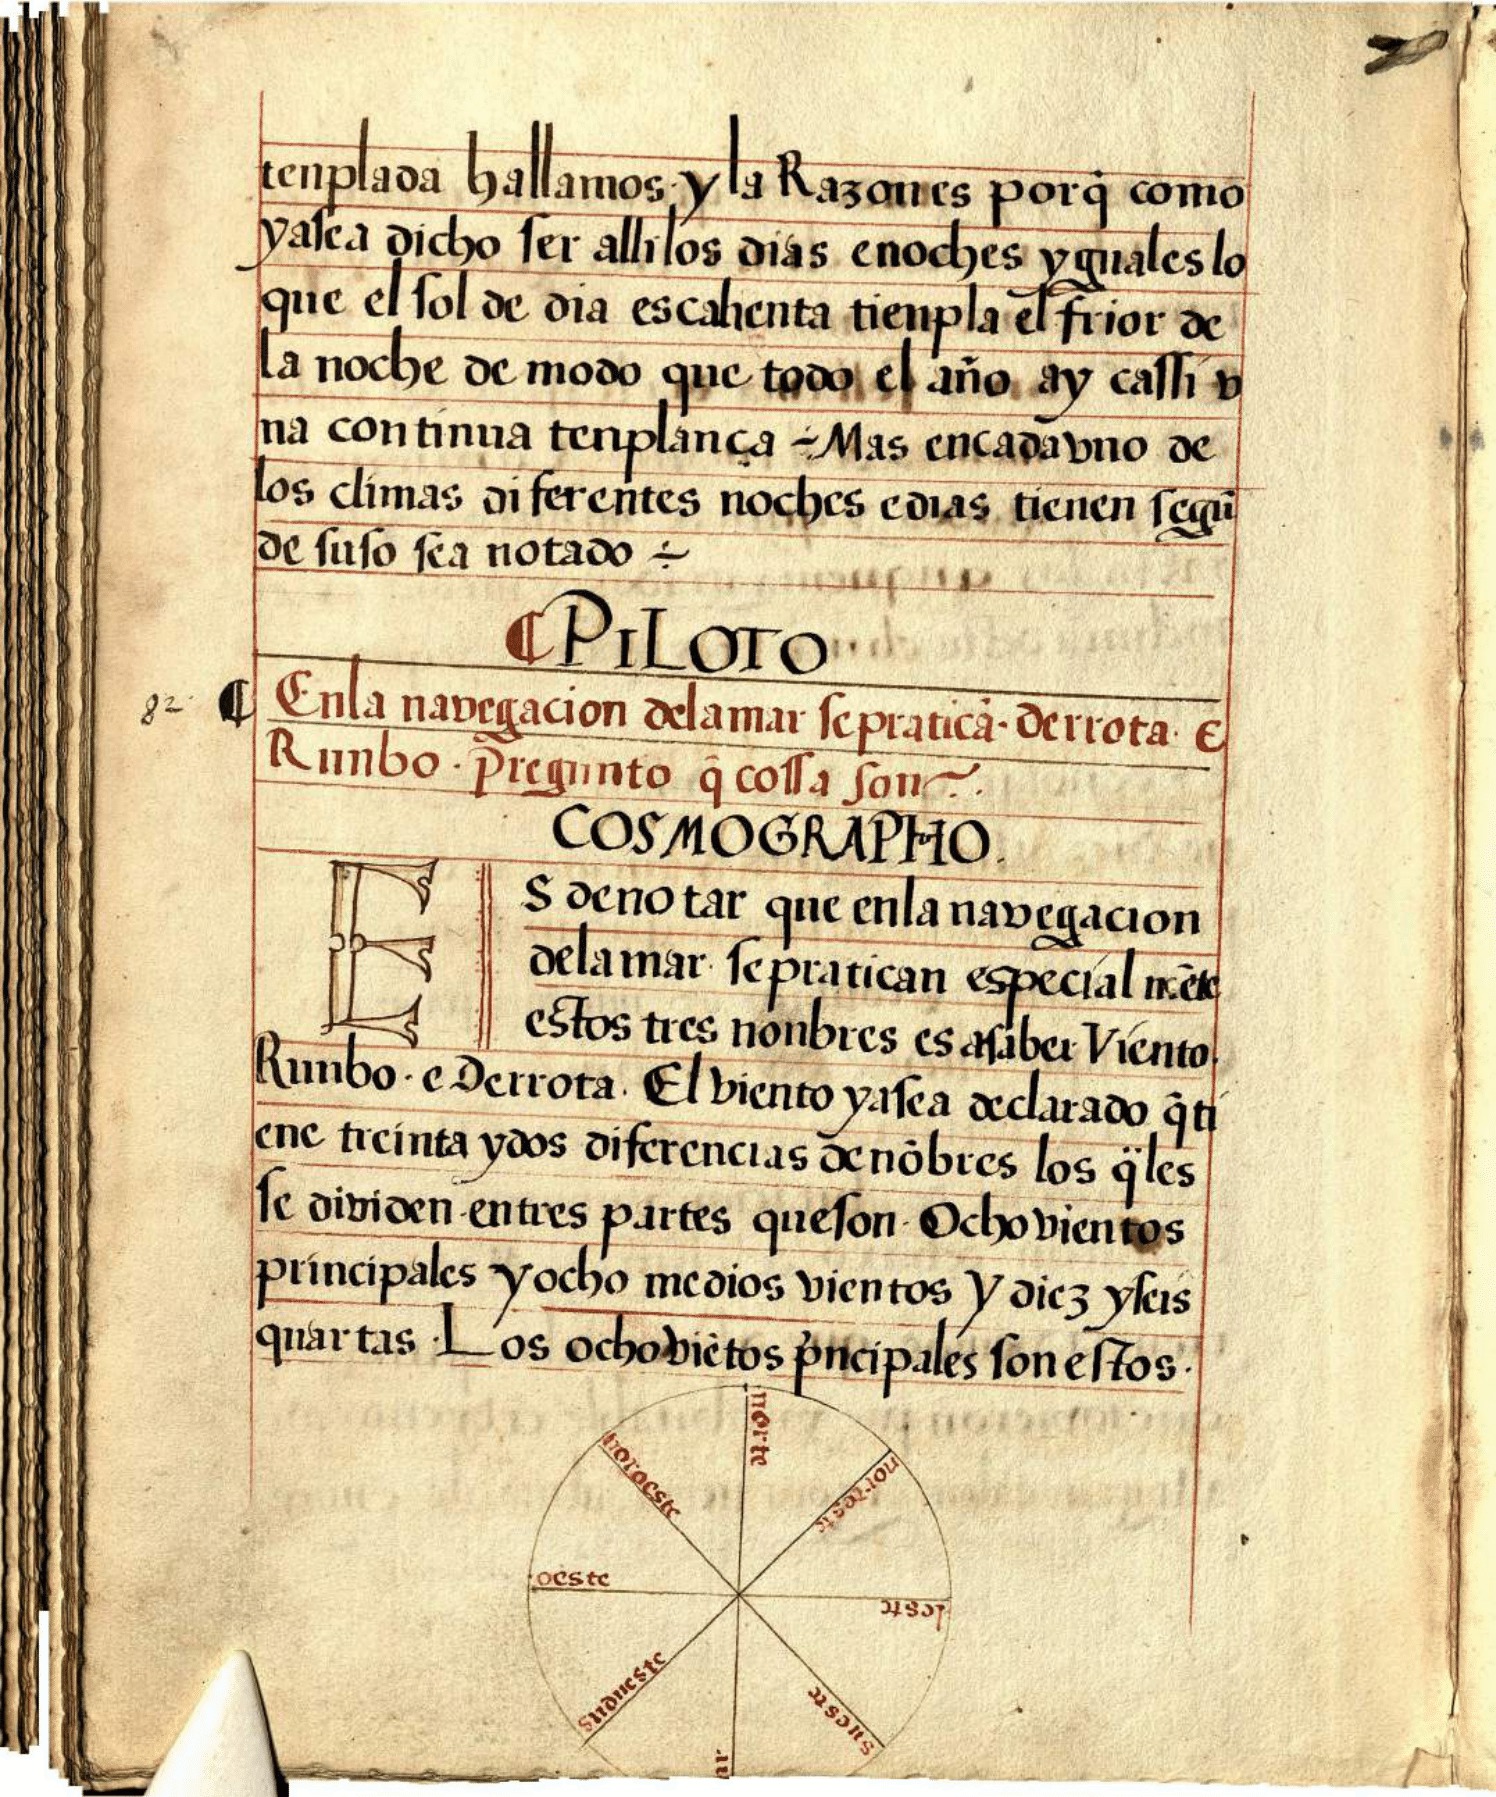 tenplada hallamos · y la Razon es porq̃ como
yasea dicho ser alli los dias enoches yguales lo
que el sol de dia escalienta tienpla el frior de
la noche de modo que todo el año ay cassi v
na continua tenplança ÷ Mas encadavno de
los climas diferentes noches edias tienen segũ
de suso sea notado ÷
¶ PILOTO
82 ¶ Enla navegacion delamar sepraticã · derrota · E
Runbo · pregunto q̃ cossa son ~ .
COSMOGRAPHO.
ES denotar que enla navegacion
delamar · sepratican especial mẽte
estos tres nonbres es asaber Viento
Runbo · e Derrota · El viento yasea declarado q̃ ti
ene treinta ydos diferencias denõbres los q̈les
se dividen · entres partes queson · Ocho vientos
principales y ocho medios vientos y diez yseis
quartas · Los ocho viẽtos p̃ncipales son estos ·
norte
noroeste
norteste
oeste
leste
sudueste
sueste